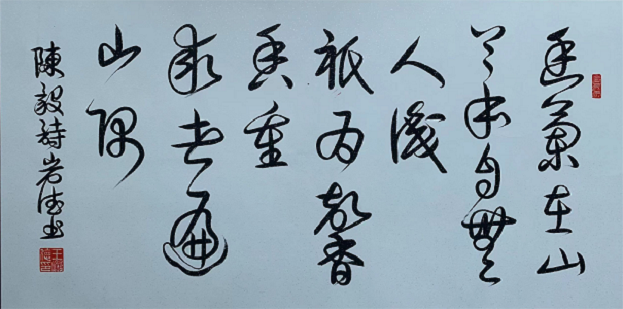 幽蘭在山
谷本自無
人識
祇为馨
香重
求者遍
山隅
陳毅詩岩书